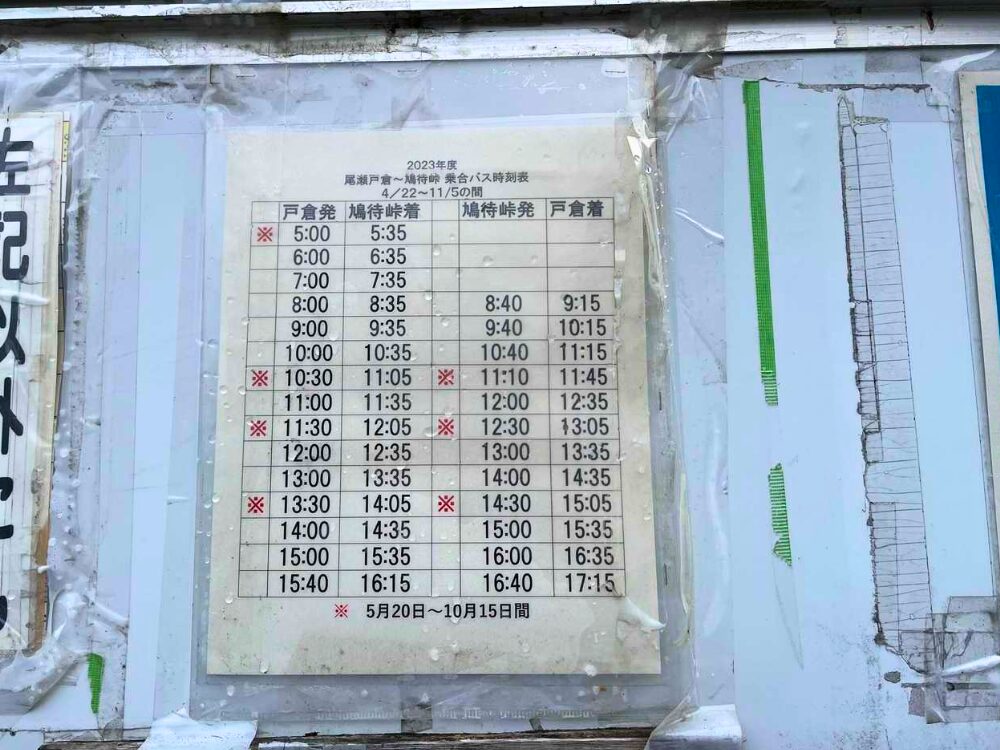 左記以外に
2023年度
尾瀬戸倉～鳩待峠 乗合バス時刻表
4／22～11/5の間
戸倉発 鳩待峠着 鳩待峠発 戸倉着
※ 5:00 5:35
6:00 6:35
7:00 7:35
8:00 8:35 8:40 9:15
9:00 9:35 9:40 10:15
10:00 10:35 10:40 11:15
※ 10:30 11:05 ※ 11:10 11:45
11:00 11:35 12:00 12:35
※ 11:30 12:05 ※ 12:30 13:05
12:00 12:35 13:00 13:35
13:00 13:35 14:00 14:35
※ 13:30 14:05 ※ 14:30 15:05
14:00 14:35 15:00 15:35
15:00 15:35 16:00 16:35
15:40 16:15 16:40 17:15
※ 5月20日～10月15日間